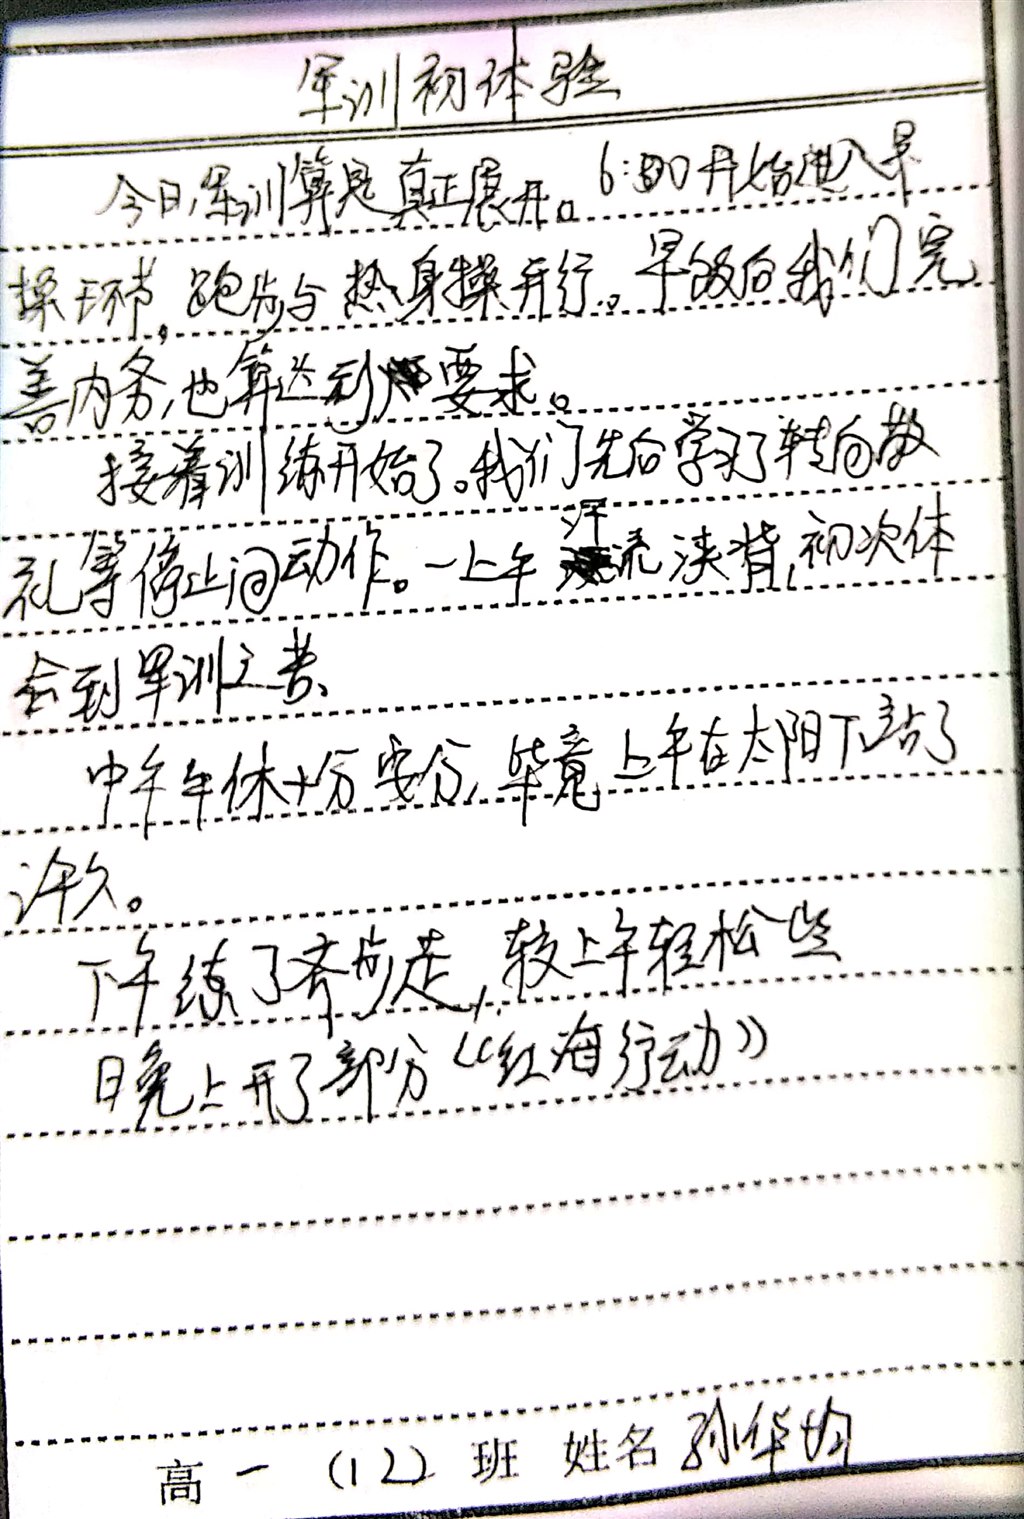 军训初体验
今日,军训算是真正展开。6:00开始进入早
操环节,跑步与热身操并行。早饭后我们完
善内务,也算达到要求。
接着训练开始了。我们先后学习了转向敬
礼等停止间动作。一上午汗流浃背,初次体
会到军训之苦、
中午午休十分安分,毕竟上午在太阳下站了
许久。
下午练了齐步走,较上午轻松些
日晚上开了部分《红海行动》
高一(12)班 姓名 孙华